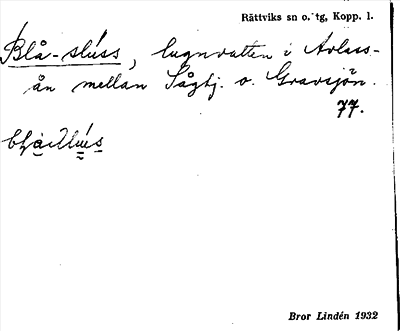 Rättviks sn o. tg, Kopp. l.
Blå-sluss, lugnvatten i Avlass-
ån mellan Sågtj. o. Gravsjön.
77.
Bror Lindén 1932